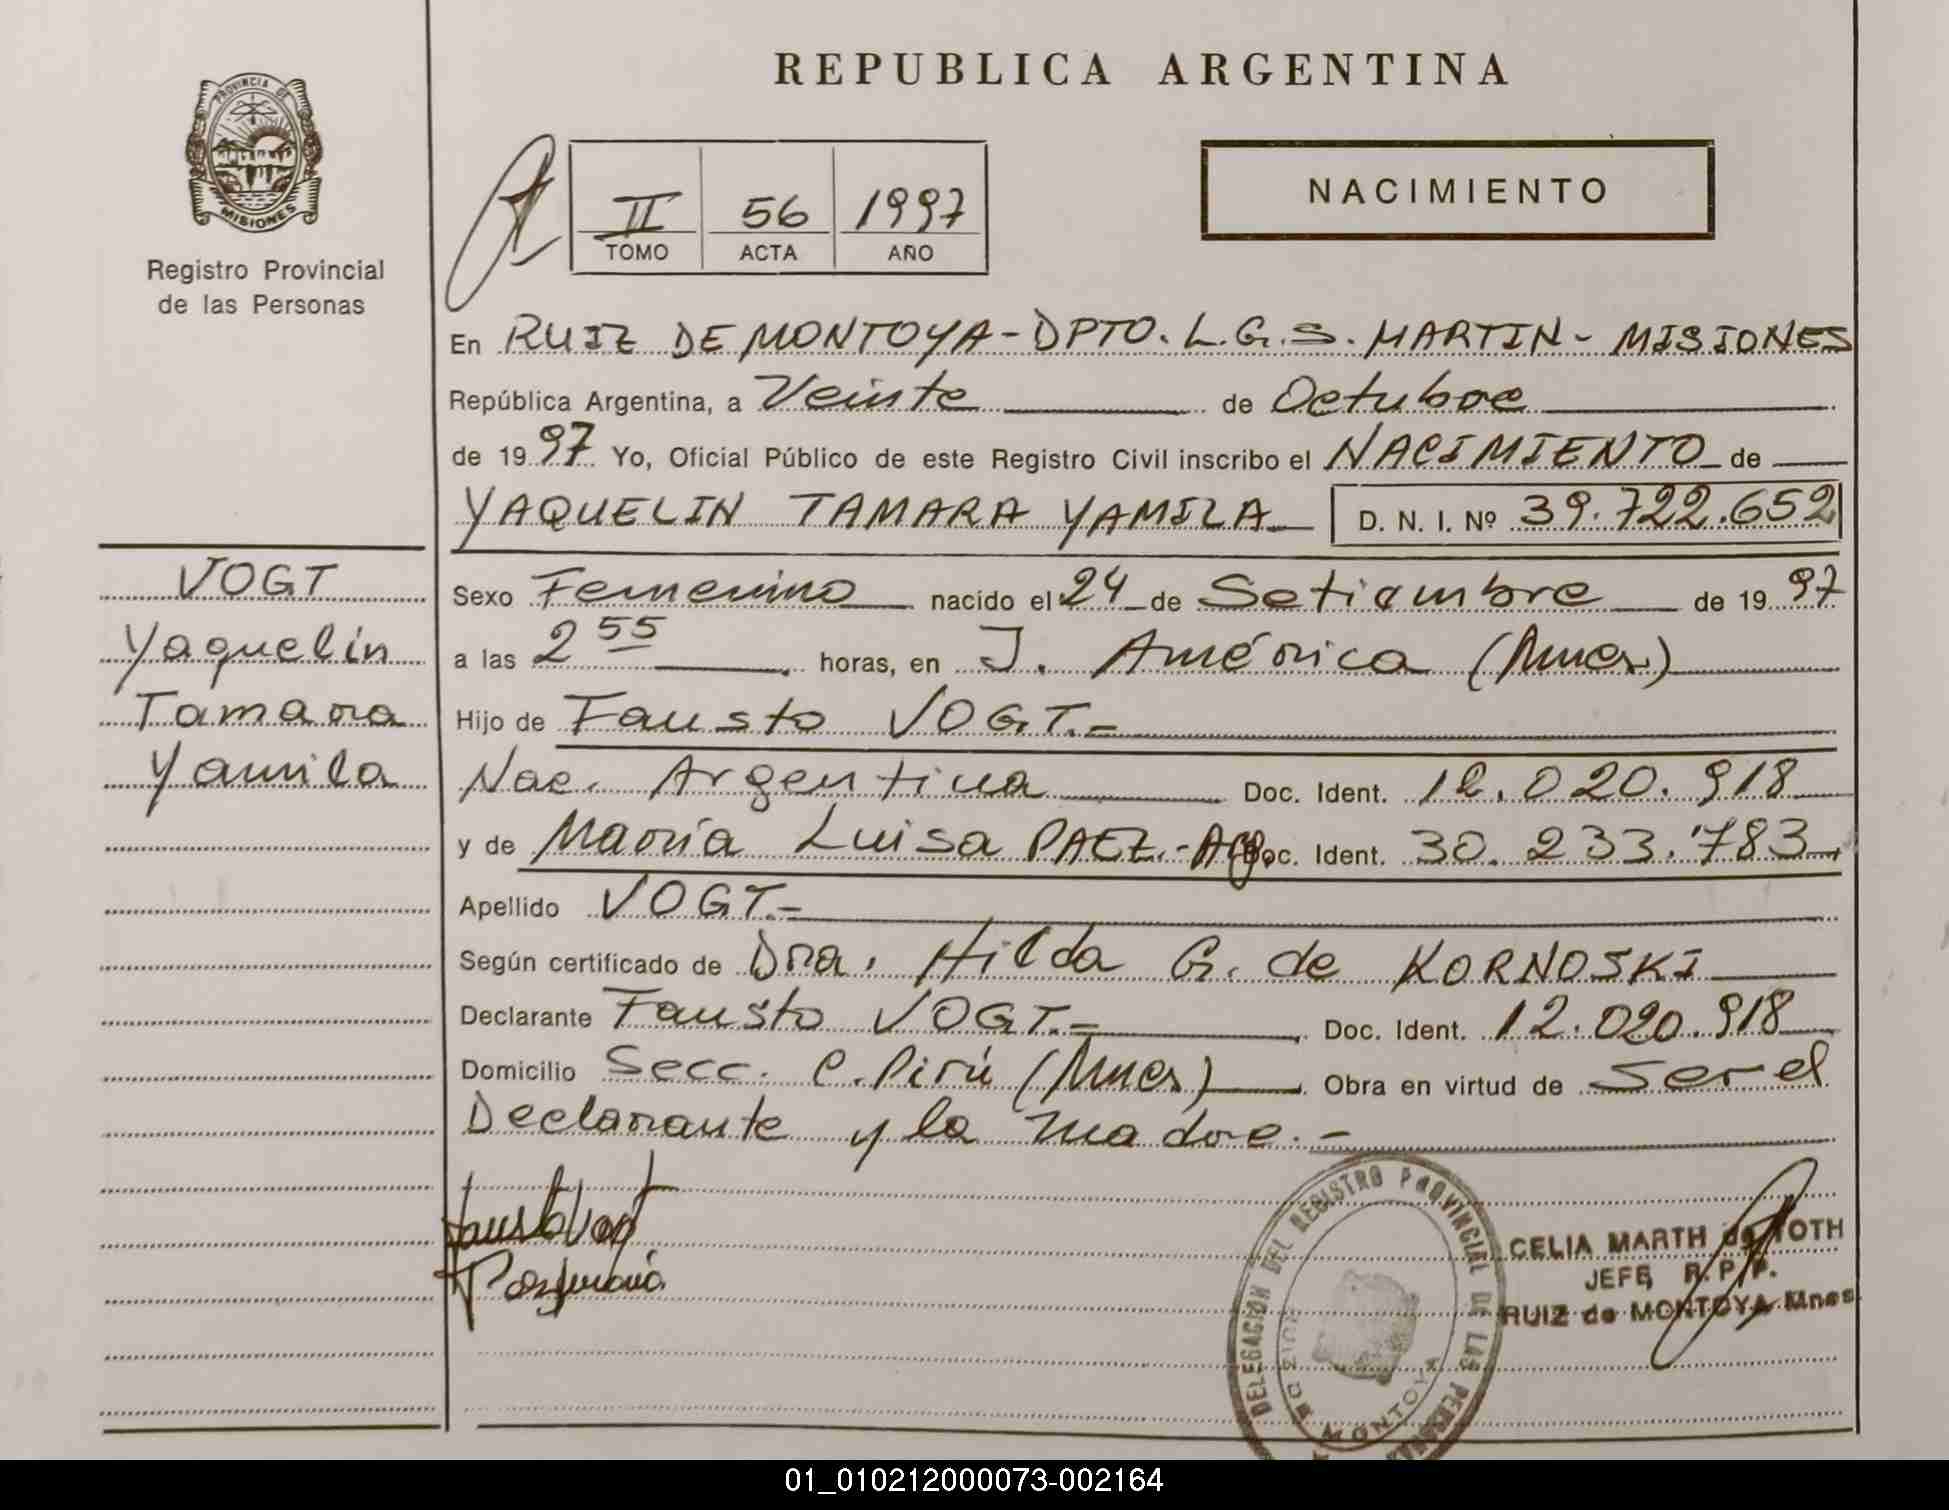 REPUBLICA ARGENTINA
PROVINCIA DE
MISIONES
Registro Provincial
de las Personas
II 56 1997
TOMO ACTA AÑO
NACIMIENTO
En RUIZ DE MONTOYA - DPTO. L.G.S. MARTIN - MISIONES
República Argentina, a Veinte de Octubre
de 1997 Yo, Oficial Público de este Registro Civil inscribo el NACIMIENTO de
YAQUELIN TAMARA YAMILA D. N. I. Nº 39.722.652
VOGT
Yaquelin
Tamara
Yamila
Sexo Femenino nacido el 24 de Setiembre de 1997
a las 2 55 horas, en J. América (Mnes)
Hijo de Fausto VOGT.-
Nac. Argentina Doc. Ident. 12.020.918
y de María Luisa PAEZ.- Arg. Doc. Ident. 30.233.783
Apellido VOGT.-
Según certificado de Dra. Hilda G. de KORNOSKI
Declarante Fausto VOGT.- Doc. Ident. 12.020.918
Domicilio Secc. C. Pirú (Mnes) Obra en virtud de ser el
Declarante y la madre.-
Fausto Vogt
DELEGACION DEL REGISTRO PROVINCIAL DE LAS PERSONAS
MONTOYA
CELIA MARTH de TOTH
JEFE R.P.P.
RUIZ de MONTOYA Mnes
01_010212000073-002164